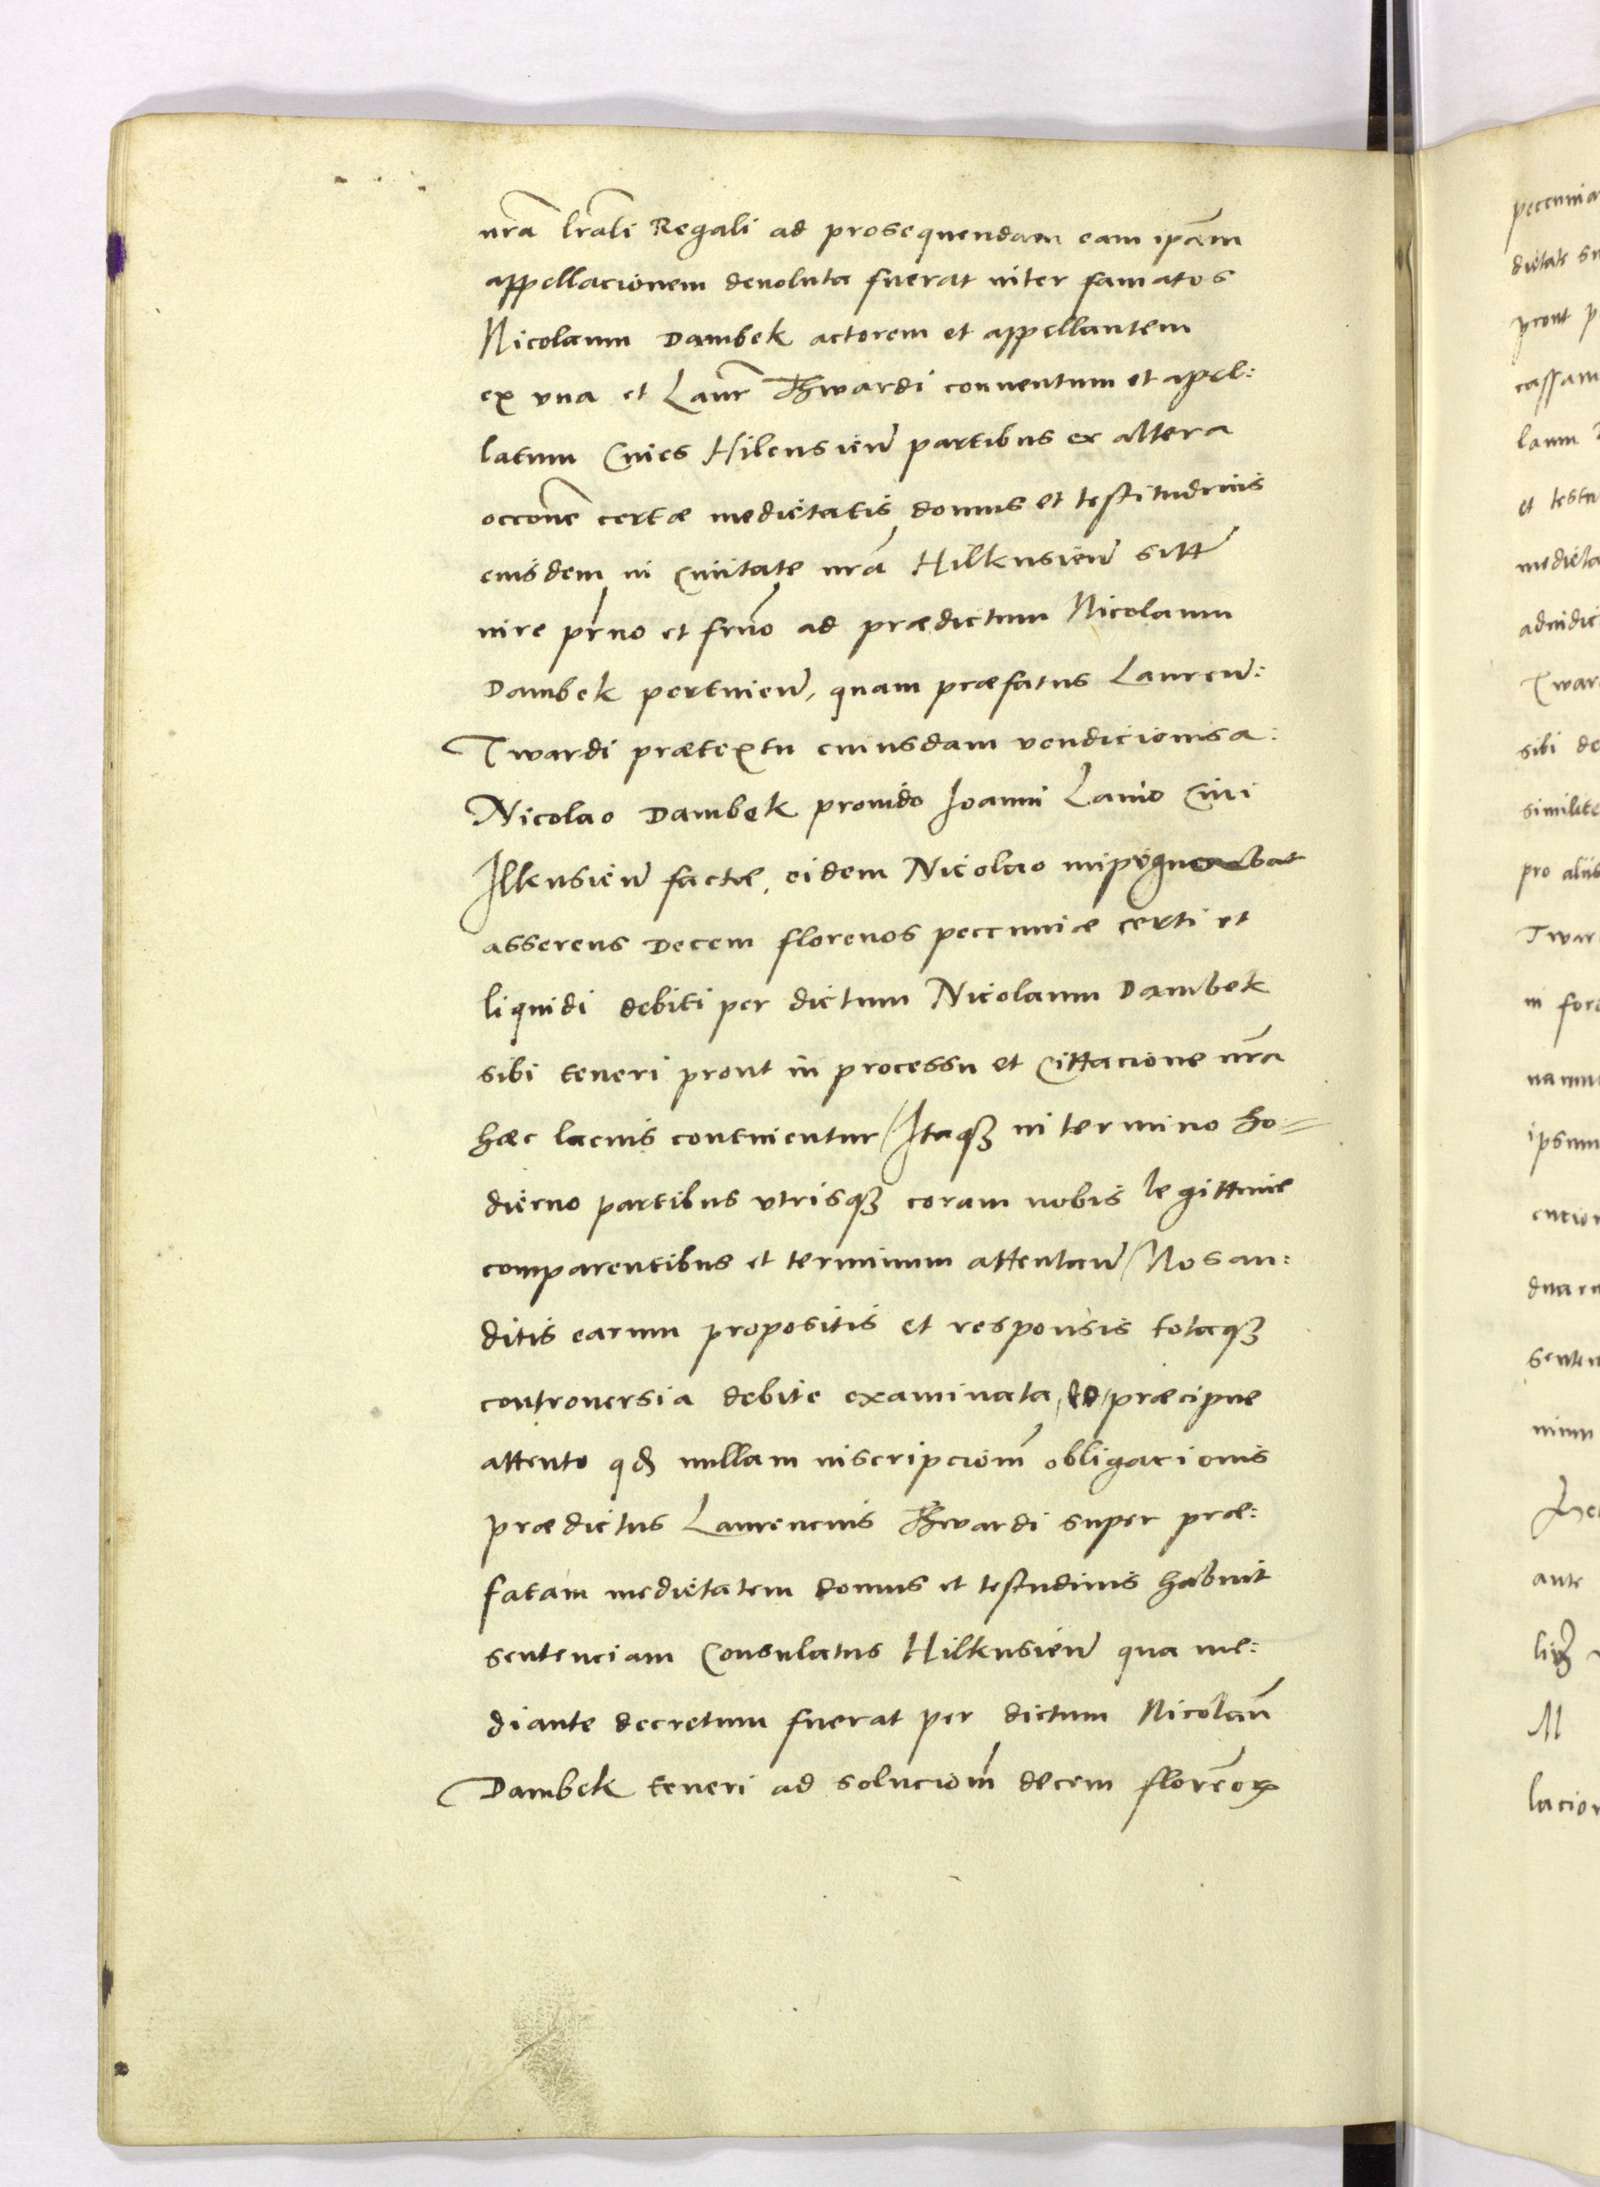 nr̃a lr̃ali Regali ad prosequendam eam ipãm
appellacionem devoluta fuerat inter famatos
Nicolaum Dambek actorem et appellantem
ex una et Laur̃ Thwardi conventum et apel:
latum Cives Hilcusien̄ partibus ex altera
occõne certæ medietatis domus et testitudinis
eiusdem in Civitate nr̃a Hilkusien̄ sitæ
iure pr̃no et fr̃no ad prædictum Nicolaum
Dambek pertinen̄, quam præfatus Lauren̄:
Twardi prætextu cuiusdam vendicionis a:
Nicolao Dambek provido Ioanni Lanio Civi
Ilkusien̄ factæ, eidem Nicolao impignorabat
asserens Decem florenos peccuniæ certi et
liquidi debiti per dictum Nicolaum Dambek
sibi teneri prout in processu et Cittacione nr̃a
hæc lacius continentur / Itaqꝫ in termino ho=
dierno partibus utrisqꝫ coram nobis legittime
comparentibus et terminum attentan̄ / Nos au:
ditis earum propositis et responsis totaqꝫ
controversia debite examinata, et præcipue
attento qđ nullam inscripcionẽ obligacionis
prædictus Laurencius Thwardi super præ:
fatam medietatem domus et testudinis habuit
sentenciam Consulatus Hilkusien̄ qua me:
diante decretum fuerat per dictum Nicolaũ
Dambek teneri ad solucionẽ decem florẽoꝝ
pecunia
dietate su
prout p
cassam
laum
et testu
medieta
adiudic
Twar
sibi de
similite
pro aliis
Twar
in foro
ipsum
ante
lacion